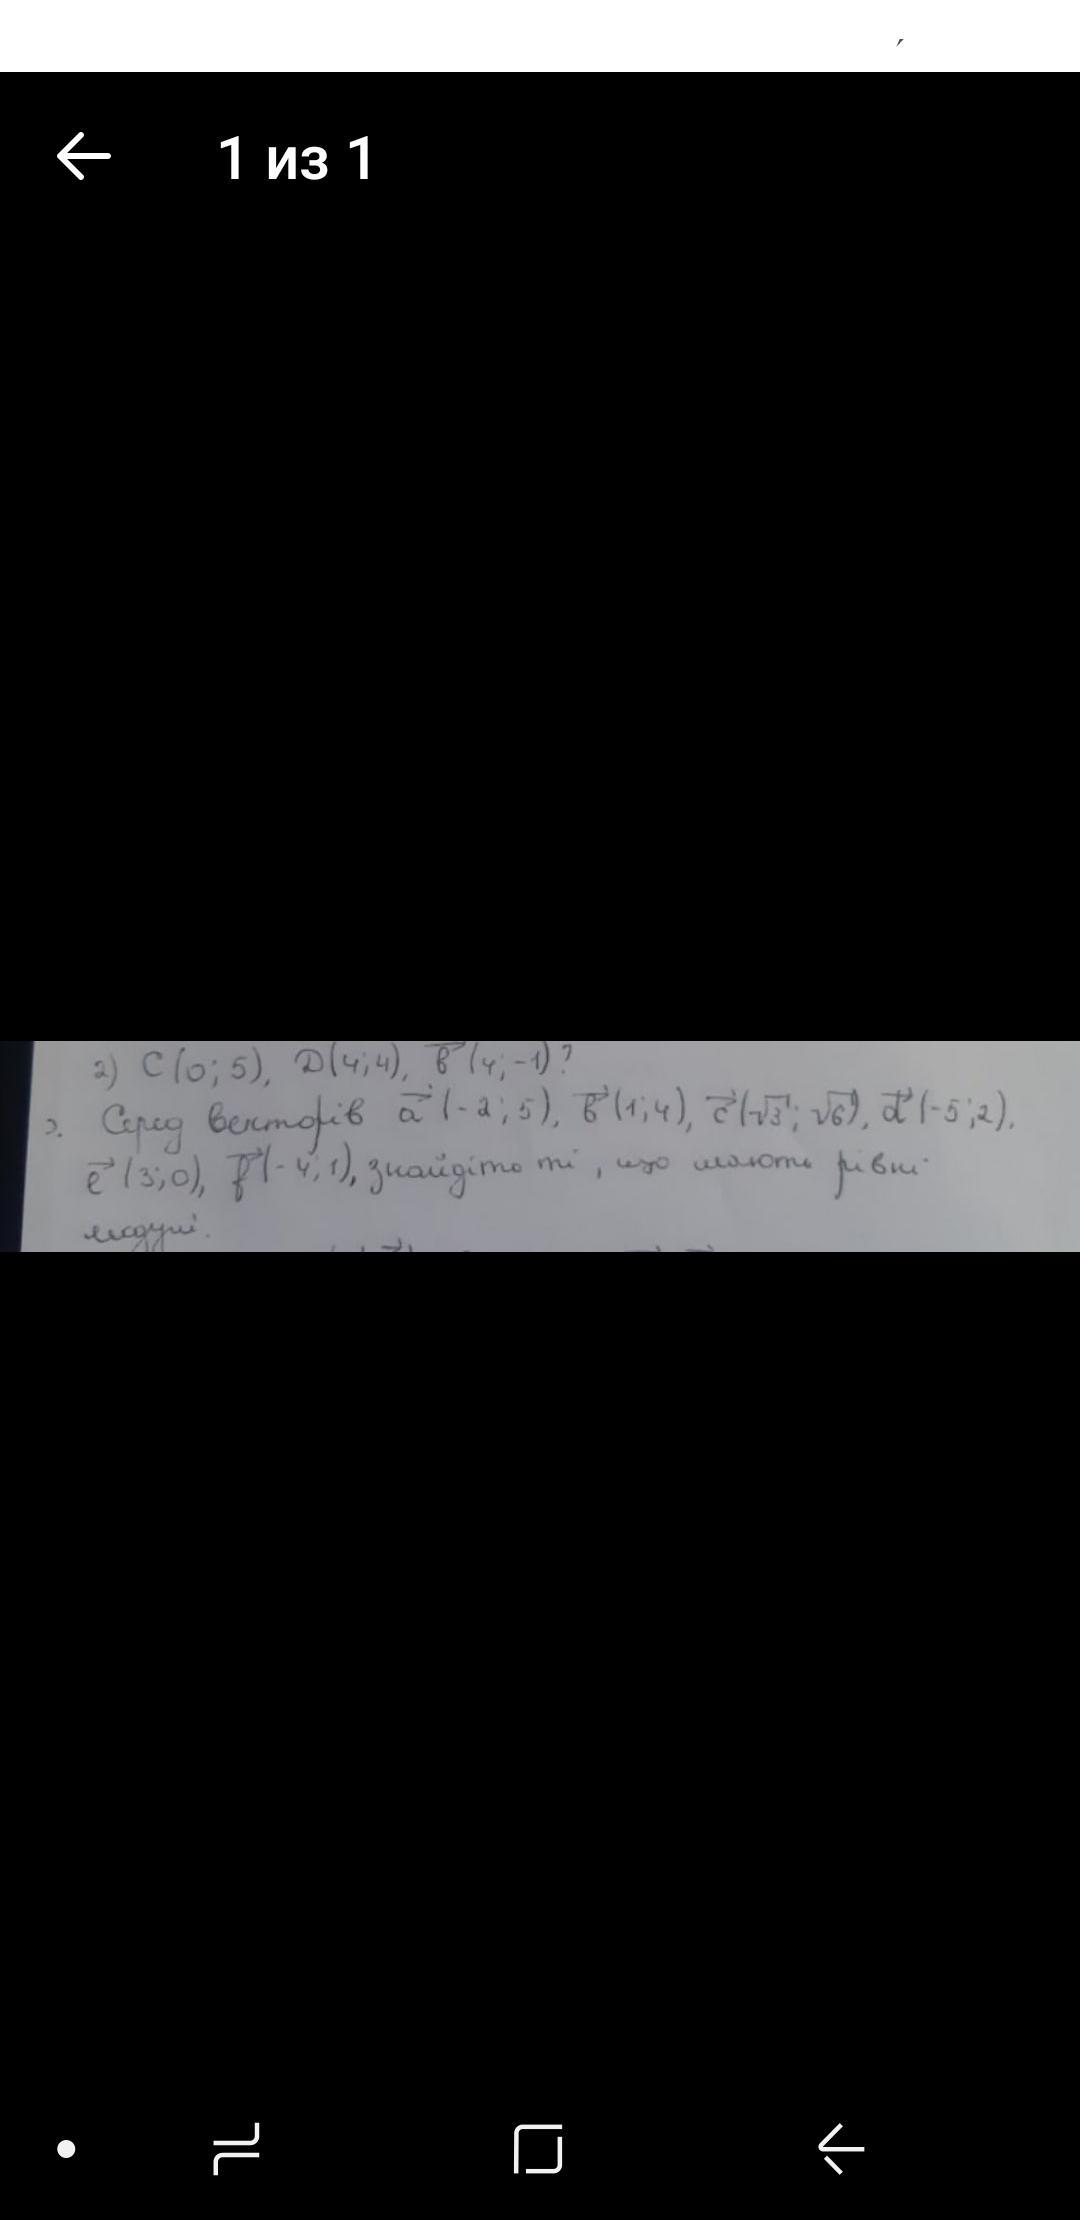 1 из 1
2) C(0; 5), D(4; 4), в⃗ (4; -1)?
3. Серед векторів a⃗ (-2; 5), в⃗ (1; 4), c⃗ (√3; √6), d⃗ (-5; 2),
e⃗ (3; 0), f⃗ (-4; 1), знайдіть ті, що мають рівні
модулі.